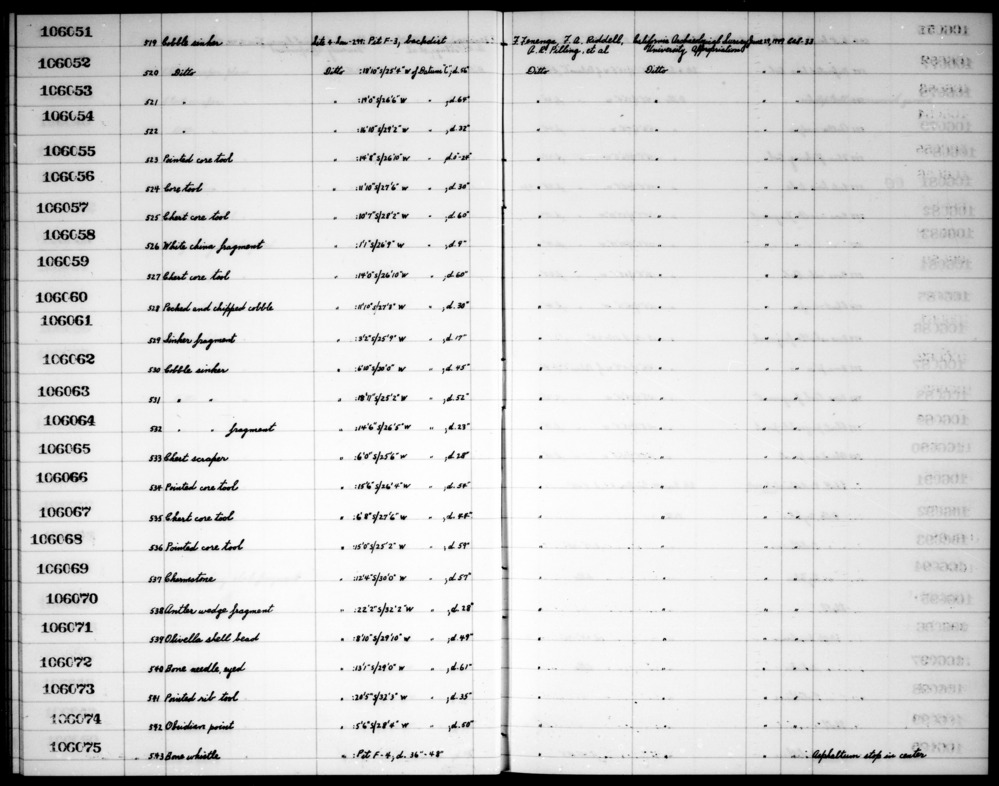 106051 519 Cobble sinker Site 4-Lan-299: Pit F-3, backdirt F. Fenenga, F. A. Riddell, California Archaeological Survey June 29, 1949 Cat. 53
A. R. Pilling, et al University Appropriation
106052 520 Ditto Ditto :18'10"S/25'4"W of Datum "C", d. 56" Ditto Ditto "
106053 521 " " :19'0"S/26'6"W " , d. 64" " " " "
106054 522 " " :16'10"S/29'2"W " , d. 22" " " " "
106055 523 Pointed core tool " :14'8"S/26'10"W " , d. 0-24" " " " "
106056 524 Core tool " :11'10"S/27'6"W " , d. 30" " " " "
106057 525 Chert core tool " :10'7"S/28'2"W " , d. 60" " " " "
106058 526 White china fragment " :1'1"S/26'9"W " , d. 9" " " " "
106059 527 Chert core tool " :19'0"S/26'10"W " , d. 60" " " " "
106060 528 Pecked and chipped cobble " :11'10"S/27'8"W " , d. 30" " " " "
106061 529 Sinker fragment " :3'2"S/25'9"W " , d. 17" " " " "
106062 530 Cobble sinker " :6'10"S/30'0"W " , d. 45" " " " "
106063 531 " " " :18'11"S/25'2"W " , d. 52" " " " "
106064 532 " " fragment " :14'6"S/26'5"W " , d. 23" " " " "
106065 533 Chert scraper " :6'0"S/25'6"W " , d. 28" " " " "
106066 534 Pointed core tool " :15'6"S/26'4"W " , d. 54" " " " "
106067 535 Chert core tool " :6'8"S/27'6"W " , d. 44" " " " "
106068 536 Pointed core tool " :15'0"S/25'2"W " , d. 59" " " " "
106069 537 Charmstone " :12'4"S/30'0"W " , d. 57" " " " "
106070 538 Antler wedge fragment " :22'2"S/32'2"W " , d. 28" " " " "
106071 539 Olivella shell bead " :8'10"S/29'10"W " , d. 49" " " " "
106072 540 Bone needle, eyed " :13'1"S/29'0"W " , d. 61" " " " "
106073 541 Pointed rib tool " :20'5"S/32'3"W " , d. 35" " " " "
106074 542 Obsidian point " :5'6"S/28'4"W " , d. 50" " " " "
106075 543 Bone whistle " :Pit F-4, d. 36"-48" " " " " Asphaltum stop in center